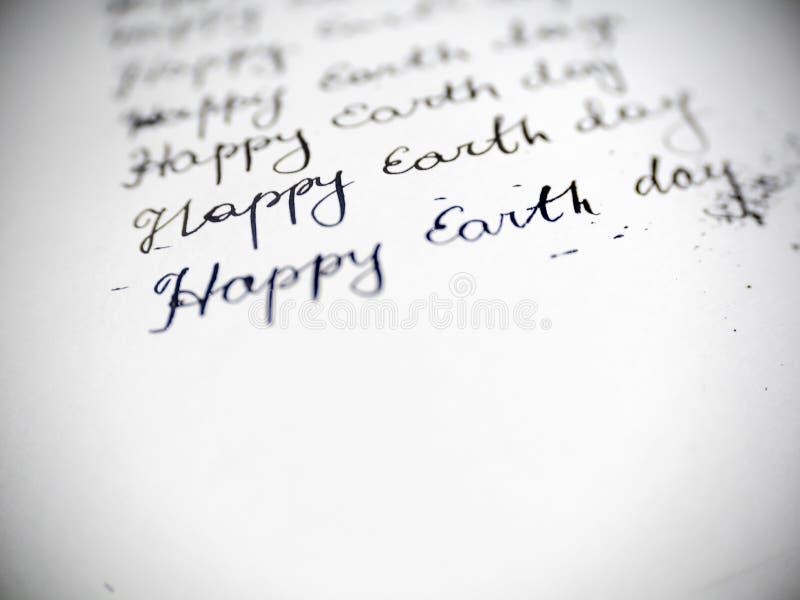 Happy
Happy Earth day
Happy Earth day
Happy Earth day
Happy Earth day
Happy Earth day
dreamstime